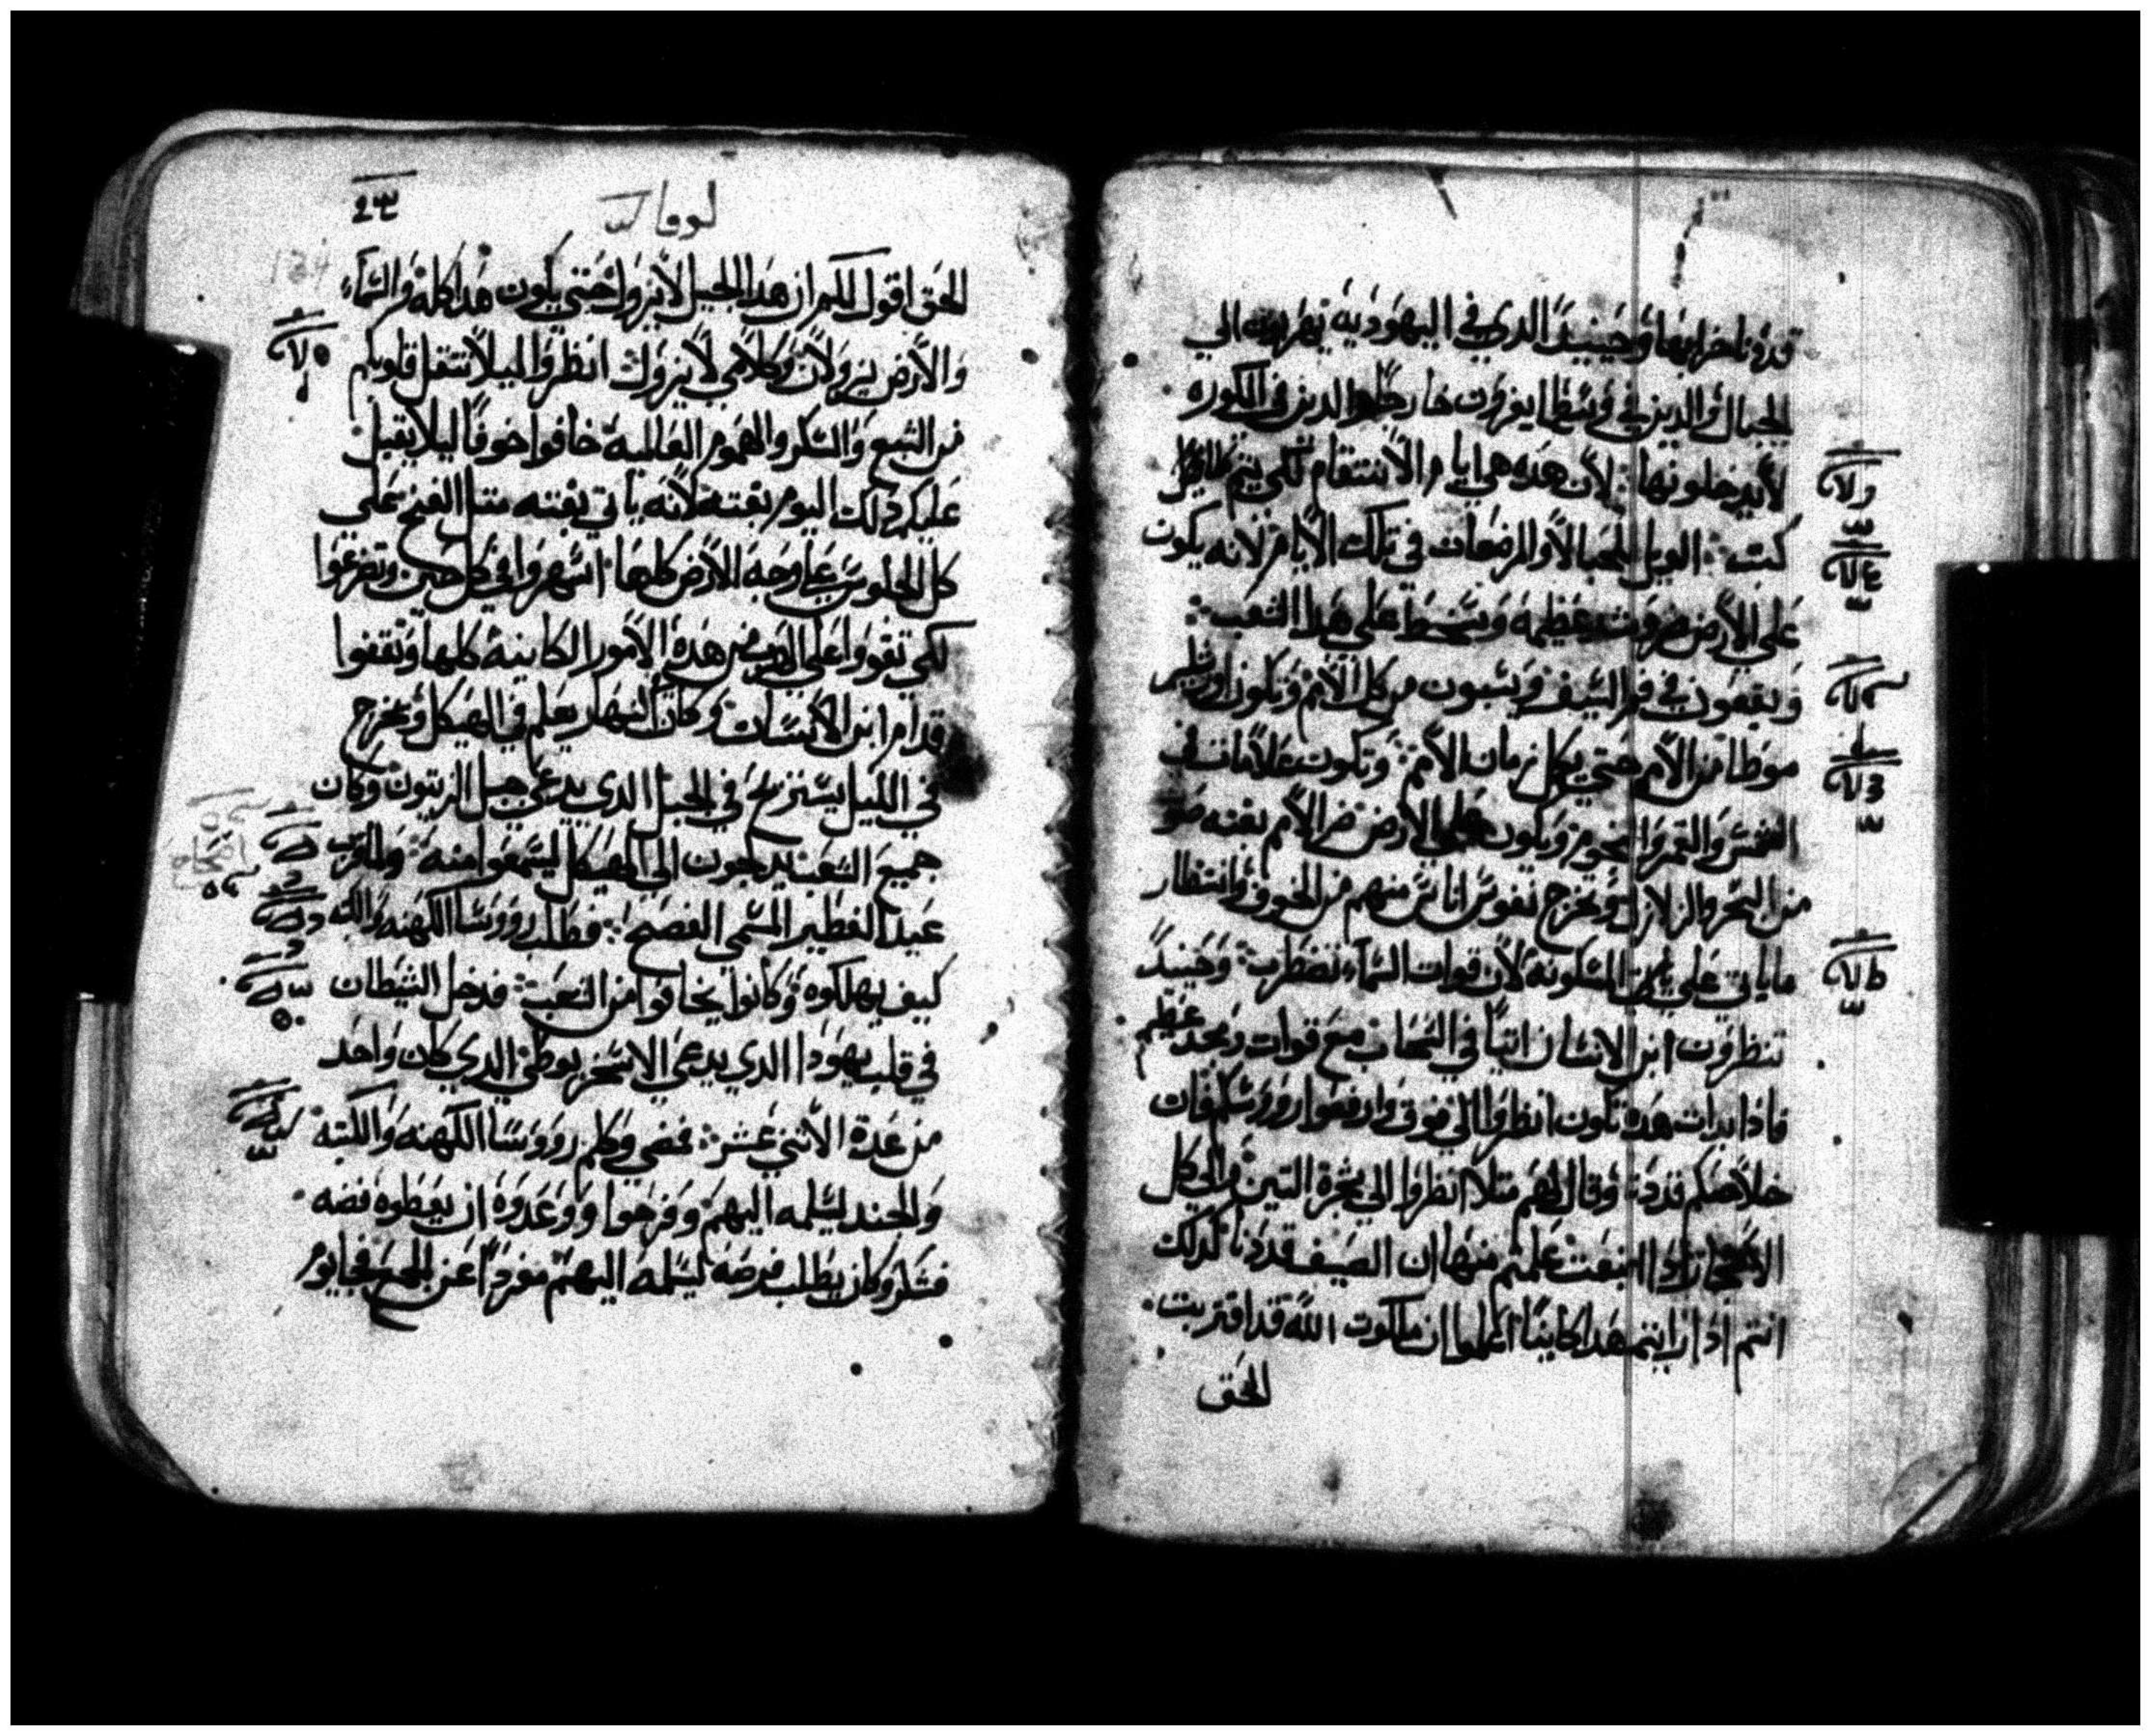 قددنا خرابها وحينيدً الدي في اليهوديه يهربون الي
الجبال والدين في وسطها يفرون خارجاً والدين في الكوره
لا يدخلونها لان هده هي ايام الانتقام لكي يتم كلما
كتب الويل للحبالا والمرضعات في تلك الايام لانه يكون
علي الارض ضرورت عظيمه وسخط علي هدا الشعب
ويقعون في فم السيف ويسبون من كل الامم وتكون اورشليم
موطا من الامم حتي يكمل زمان الامم وتكون علامات في
الشمس والقمر والنجوم ويكون علي الارض ضر الامم بغته صوَ
من البحر والزلازل وتخرج نفوس اناس منهم من الخوف وانتظار
ماياتي علي المسكونه لان قوات السماء تضطرب وحينيدً
تنظرون ابن الانسان اتياً في السحاب مع قوات ومجد عظيم
فادا بدات هده تكون انظروا الي فوق وارفعوا رووسكم فان
خلاصكم قد دنا وقال لهم مثلا انظروا الي شجرة التين والي كل
الاشجار ادا اينعت علمتم منها ان الصيف قد دنا كدلك
انتم ادا رايتم هدا كاينا اعلموا ان ملكوت الله قد اقتربت
الحق
لوقا
134
الحق اقول لكم ان هدا الجيل لا يزول حتي يكون هدا كله والسماء
والارض يزولان وكلامي لا يزول انظروا ليلا تتقل قلوبكم
من الشبع والسكر والهموم العالميه خافوا خوفاً ليلا يقبل
عليكم دلك اليوم بغته لانه ياتي بغته متل الفخ علي
كل الجلوس علي وجه الارض كلها اسهروا في كل حين وتضرعوا
لكي تقووا علي الهرب من هده الامور الكاينه كلها وتقفوا
قدام ابن الانسان وكان النهار يعلم في الهيكل ويخرج
في الليل يستريح في الجبل الدي يدعي جبل الزيتون وكان
جميع الشعب يدلجون الي الهيكل ليسمعوا منه ولما قرب
عيد الفطير المسمي الفصح فطلب رووسا الكهنه والكتبه
كيف يهلكوه وكانوا يخافوا من الشعب فدخل الشيطان
في قلب يهودا الدي يدعي الاسخريوطي الدي كان واحد
من عدة الاتني عشر فمضي وكلم رووسا الكهنه والكتبه
والجند ليسلمه اليهم وفرحوا ووعدوه ان يعطوه فضه
فشكر وكان يطلب فرصه ليسلمه اليهم مفرداً عن الجمع فجا يوم